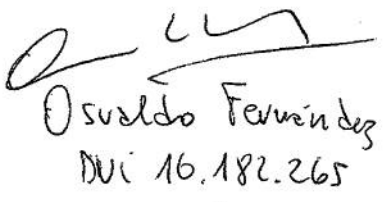 Osvaldo Fernández
DNi 16.182.265